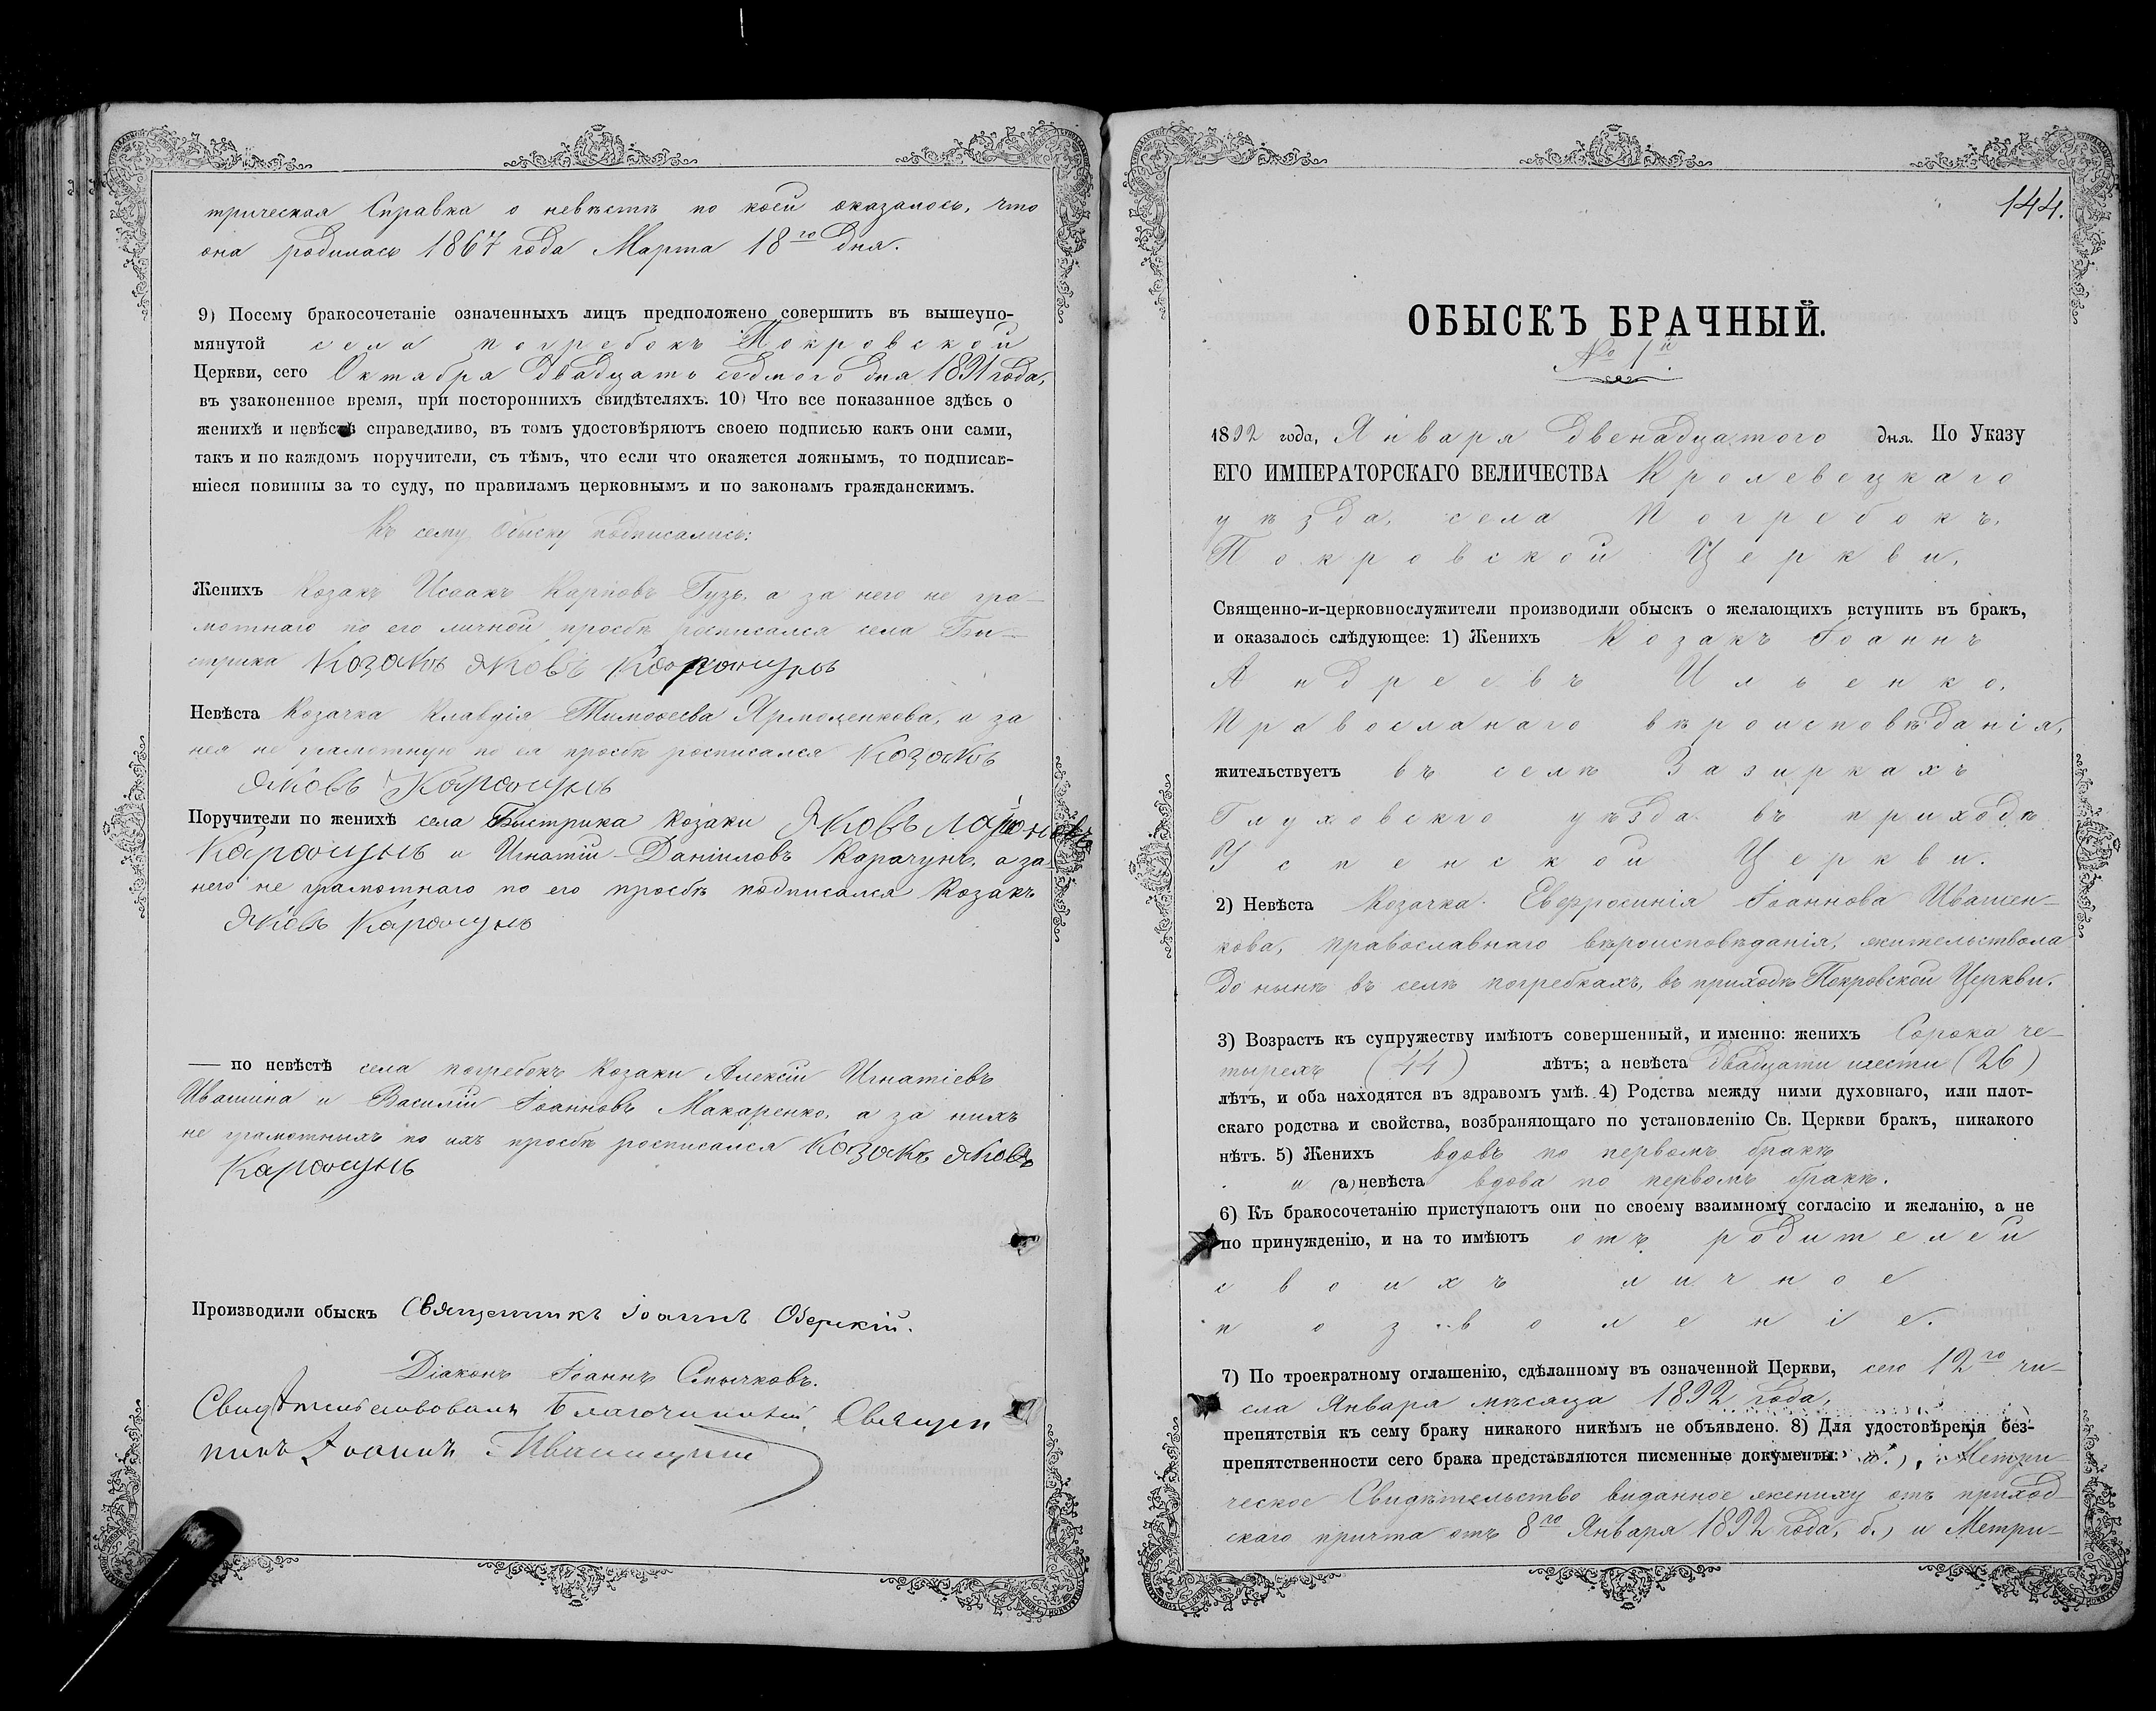 трическая Справка о невѣстѣ по коей оказалось, что
она родилась 1867 года Марта 18го дня.
9) Посему бракосочетаніе означенныхъ лицъ предположено совершить въ вышеупо-
мянутой села погребокъ Покровской
Церкви, сего Октября двадцать седмого дня 1891 года,
въ узаконенное время, при постороннихъ свидѣтеляхъ. 10) Что все показанное здѣсь о
женихѣ и невѣстѣ справедливо, въ томъ удостовѣряютъ своею подписью какъ они сами,
такъ и по каждомъ поручители, съ тѣмъ, что если что окажется ложнымъ, то подписав-
шіеся повинны за то суду, по правиламъ церковнымъ и по законамъ гражданскимъ.
Къ сему обыску подписались:
Женихъ Козакъ Исаакъ Карповъ Гузь, а за него не гра-
мотнаго по его личной просьбѣ росписался села Би-
стрика Козакъ Яковъ Карачунъ
Невѣста Козачка Клавдія Тимоѳеева Ярмоленкова, а за
нея не грамотную по ея просьбѣ росписался Козакъ
Яковъ Карачунъ
Поручители по женихѣ села Быстрика Козаки Яковъ
Карачунъ и Игнатій Даніиловъ Карачунъ, а за
него не грамотнаго по его просьбѣ подписался Козакъ
Яковъ Карачунъ
— по невѣстѣ села погребокъ Козаки Алексій Игнатіевъ
Ивашина и Василій Іоанновъ Макаренко, а за нихъ
не грамотныхъ по ихъ просьбѣ росписался Козакъ Яковъ
Карачунъ
Производили обыскъ Священникъ Іоаннъ
Діаконъ Іоаннъ Смычковъ.
Свидѣтельствовалъ Благочинный Священ
никъ Іоаннъ
144.
ОБЫСКЪ БРАЧНЫЙ.
№ 1й.
1892 года, Января двенадцатого дня. По Указу
ЕГО ИМПЕРАТОРСКАГО ВЕЛИЧЕСТВА Кролевецкаго
уѣзда, села Погребокъ,
Покровской Церкви,
Священно-и-церковнослужители производили обыскъ о желающихъ вступить въ бракъ,
и оказалось слѣдующее: 1) Женихъ Козакъ Іоаннъ
Андреевъ Ильенко,
Православнаго вѣроисповѣданія,
жительствуетъ въ селѣ Зазиркахъ
Глуховскго уѣзда въ приходѣ
Успенской Церкви.
2) Невѣста Козачка Евфросинія Іоаннова Ивашен-
кова, православнаго вѣроисповѣданія, жительствола
до нынѣ въ селѣ погребкахъ, въ приходѣ Покровской Церкви.
3) Возрастъ къ супружеству имѣютъ совершенный, и именно: женихъ Сорока че-
тырехъ (44) лѣтъ; а невѣста двадцати шести (26)
лѣтъ, и оба находятся въ здравомъ умѣ. 4) Родства между ними духовнаго, или плот-
скаго родства и свойства, возбраняющаго по установленію Св. Церкви бракъ, никакого
нѣтъ. 5) Женихъ вдовъ по первомъ бракѣ
и (а) невѣста вдова по первомъ бракѣ.
6) Къ бракосочетанію приступаютъ они по своему взаимному согласію и желанію, а не
по принужденію, и на то имѣютъ отъ родителей
своихъ личное
позволеніе.
7) По троекратному оглашенію, сдѣланному въ означенной Церкви, сего 12го чи-
сла Января мѣсяца 1892 года,
препятствія къ сему браку никакого никѣмъ не объявлено. 8) Для удостовѣренія без-
препятственности сего брака представляются писменные документы: а.), Метри-
ческое Свидѣтельство виданное жениху отъ приход-
скаго причта отъ 8го Января 1892 года, б.) и Метри-